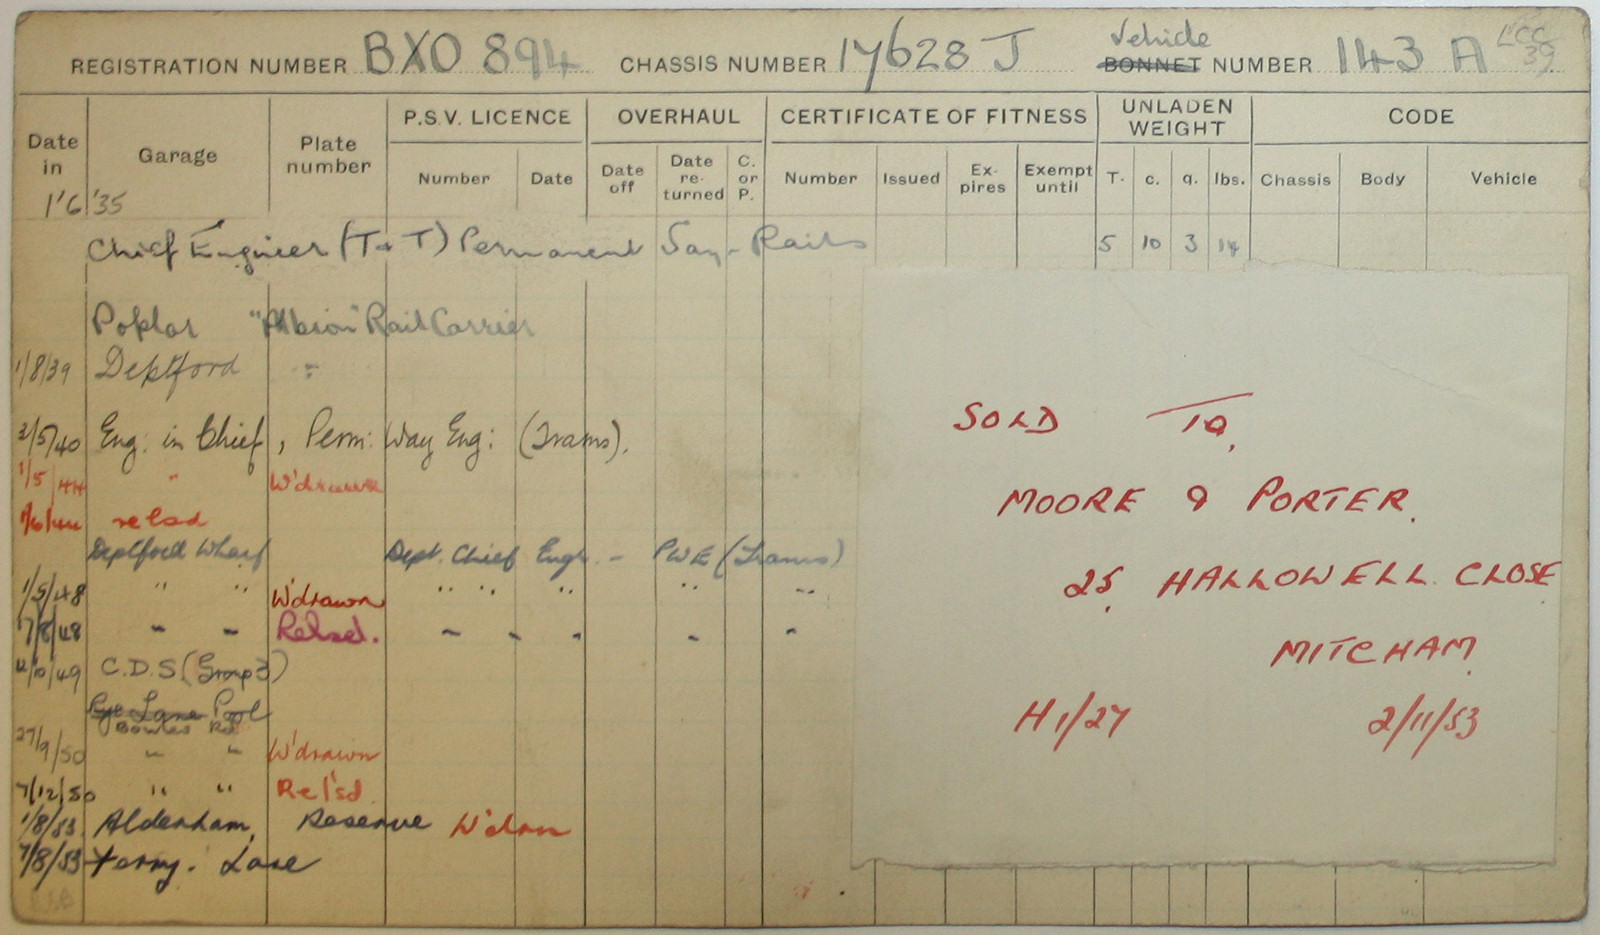 REGISTRATION NUMBER BXO 894 CHASSIS NUMBER 17628 J Vehicle BONNET NUMBER 143 A LCC 39
Date in Garage Plate number P.S.V. LICENCE OVERHAUL CERTIFICATE OF FITNESS UNLADEN WEIGHT CODE
Number Date Date off Date re-turned C. or P. Number Issued Ex-pires Exempt until T. c. q. lbs. Chassis Body Vehicle
1'6'35
Chief Engineer (T & T) Permanent Way - Rails 5 10 3 14
Poplar "Albion" Rail Carrier
1/8/39 Deptford "
2/5/40 Eng: in Chief, Perm: Way Eng: (Trams).
1/5/44 " W'drawn
1/6/44 relsd
Deptford Wharf Dept. Chief Engr. - PWE (Trams)
1/5/48 " " W'drawn " " " " "
7/8/48 " " Relsed. " " " " "
12/10/49 C.D.S (Group 3)
Rye Lane Pool
Bowles Rd
27/9/50 " " W'drawn
7/12/50 " " Rel'sd
1/8/53 Aldenham, Reserve W'drn
7/8/53 Ferny. Lane
SOLD TO,
MOORE & PORTER.
25, HALLOWELL CLOSE
MITCHAM
H1/27 2/11/53